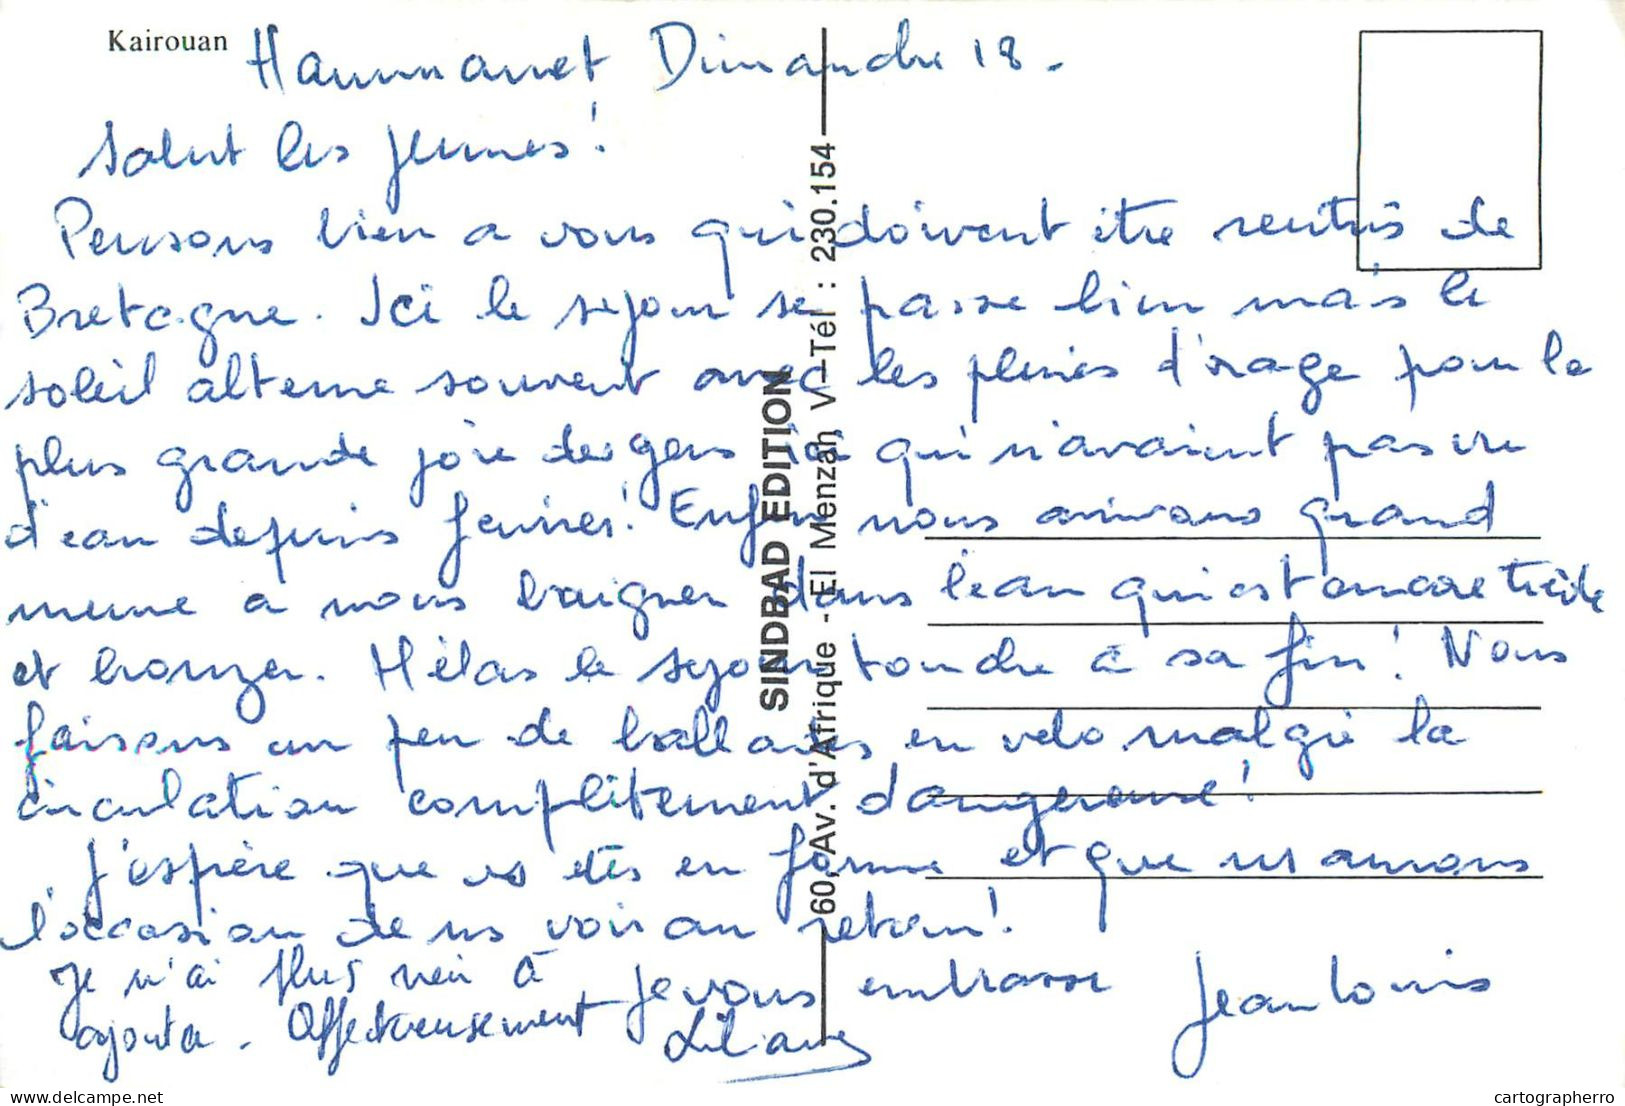 Kairouan
Hammamet Dimanche 18.
Salut les jeunes !
Pensons bien a vous qui doivent être rentrés de
Bretagne. Ici le sejour se passe bien mais le
soleil alterne souvent avec les pluies d'orage pour la
plus grande joie des gens ici qui n'avaient pas vu
d'eau depuis fevrier ! Enfin nous arrivons grand
meme a nous baigner dans l'eau qui est encore tiède
et bronzer. Hélas le sejour touche à sa fin ! Nous
faisons un peu de ballades en velo malgré la
circulation complètement dangereuse !
J'espère que vs êtes en forme et que ns aurons
l'occasion de ns voir au retour !
Je n'ai plus rien à
ajouter. Affectueusement
Je vous embrasse
Jean Louis
Liliane
SINDBAD EDITION
60, Av. d'Afrique - El Menzah V—Tél : 230.154
www.delcampe.net
cartographerro